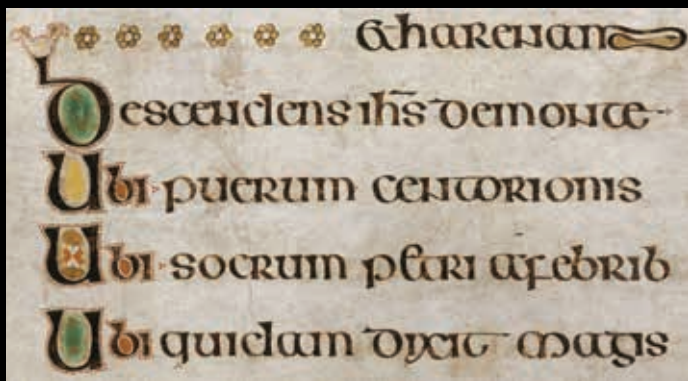 & harenam
Descendens ihs de monte
Ubi puerum centorionis
Ubi socrum petri a febrib
Ubi quidam dixit magis